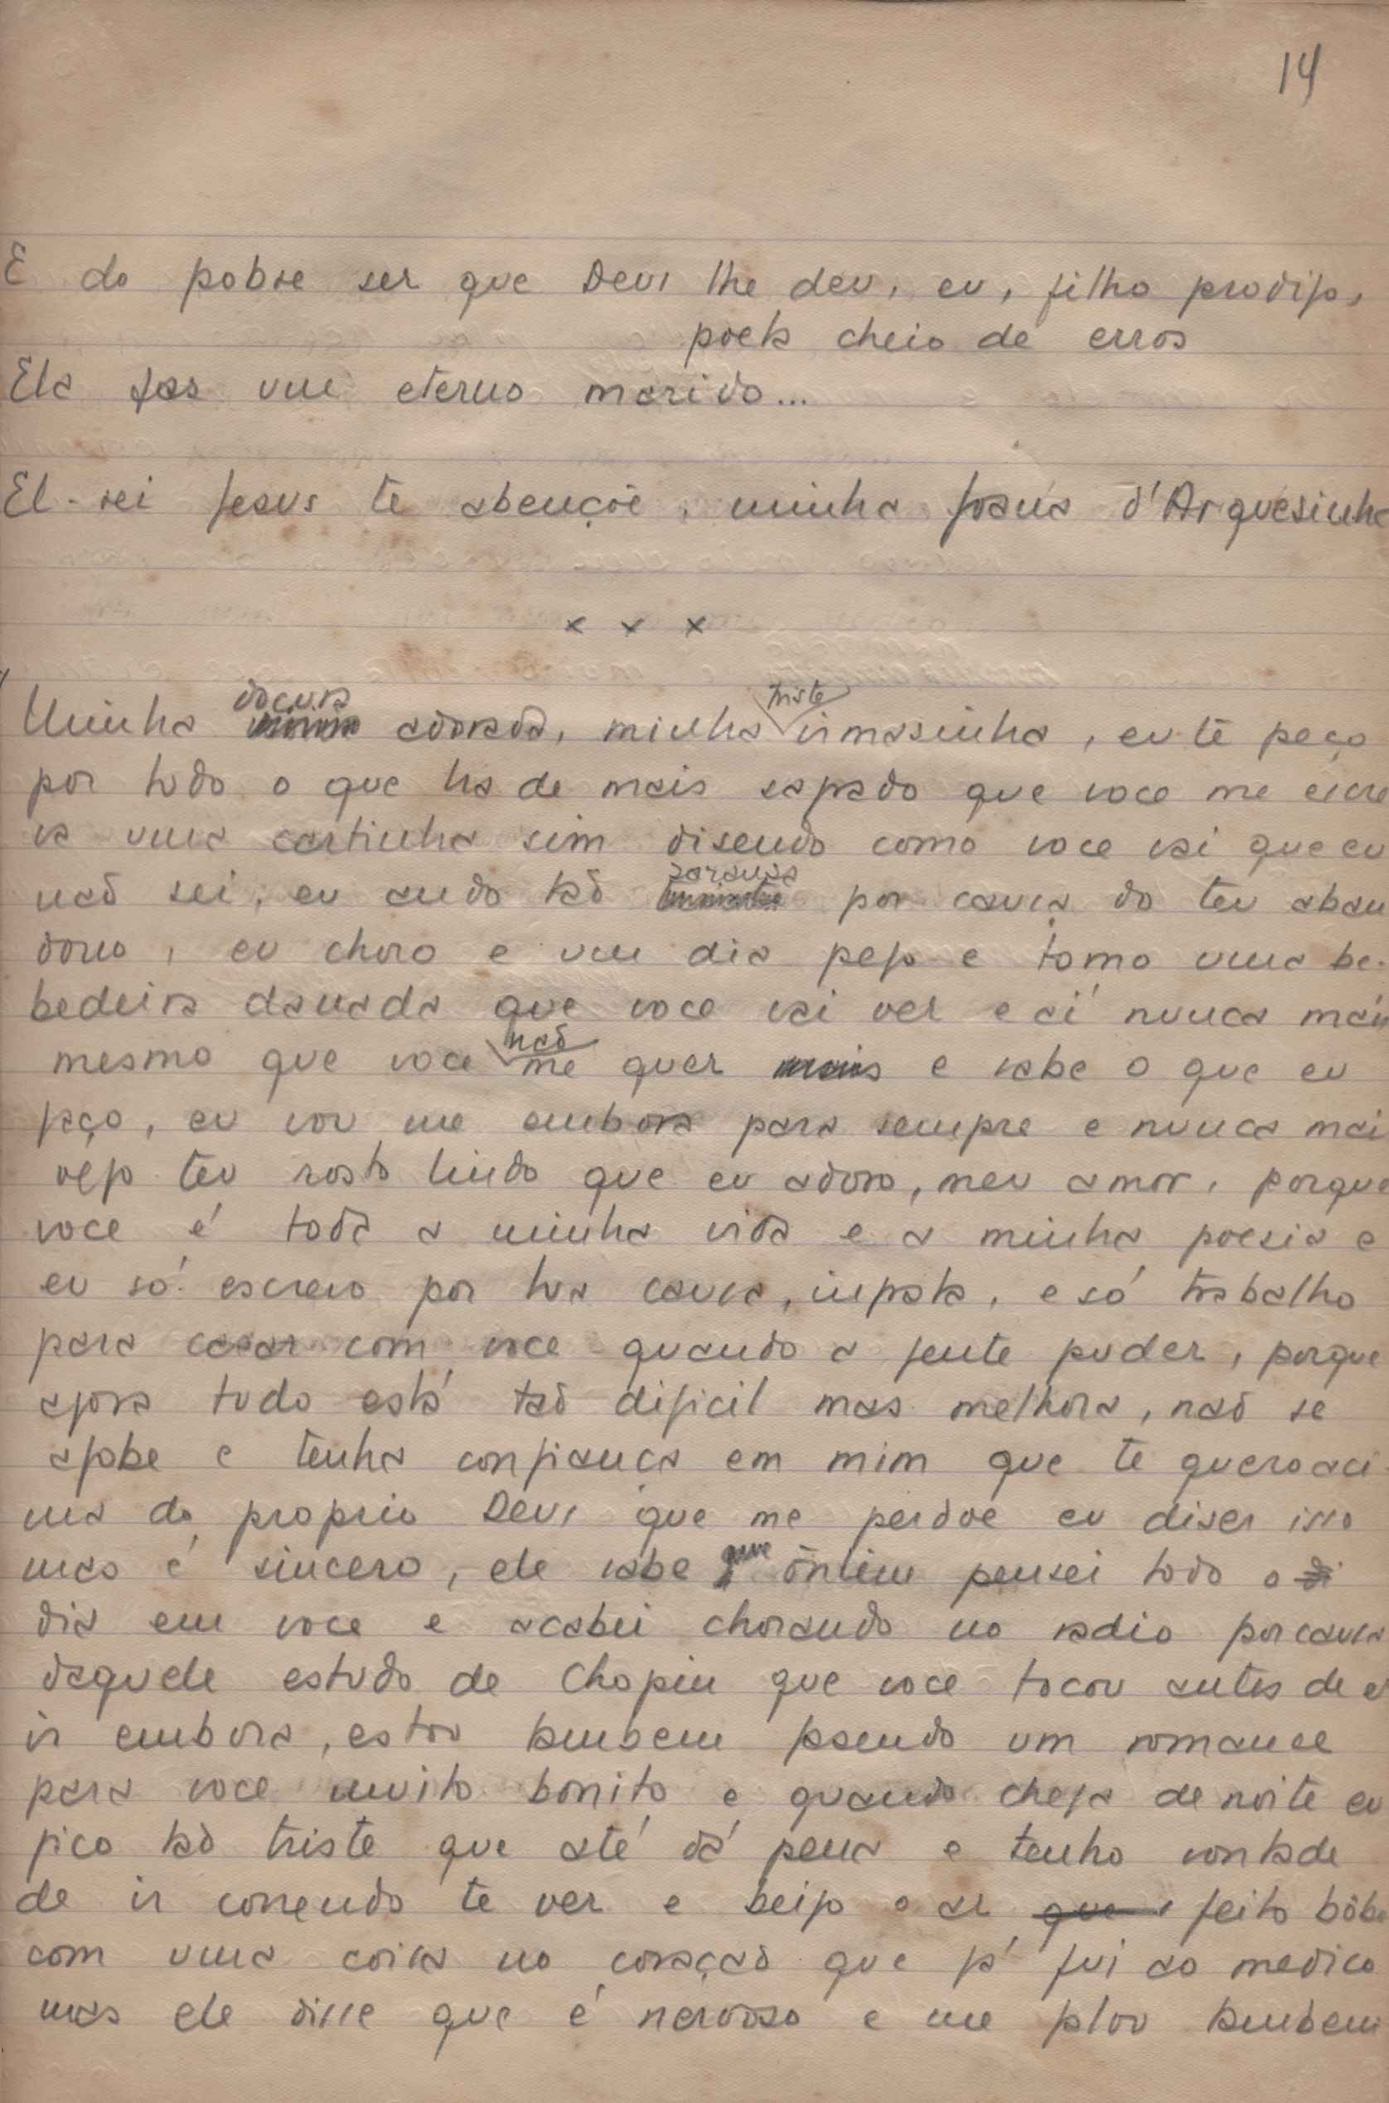 14
E do pobre ser que Deus lhe deu, eu, filho prodigo,
poeta cheio de erros
Ela faz um eterno marido...
El-rei Jesus te abençõe, minha Joana d'Arquesinha
x x x
Minha doçura adorada, minha triste irmasinha, eu te peço
por tudo o que ha de mais sagrado que voce me escre
va uma cartinha sim disendo como voce vai que eu
naõ sei, eu ando taõ zaranza por causa do teu aban
dono, eu choro e um dia pego e tomo uma be-
bedeira danada que voce vai ver e aí nunca mais
mesmo que voce naõ me quer mais e sabe o que eu
faço, eu vou me embora para sempre e nunca mai
vejo teu rosto lindo que eu adoro, meu amor, porque
voce é toda a minha vida e a minha poesia e
eu só escrevo por tua causa, ingrata, e só trabalho
para casar com voce quando a gente puder, porque
agora tudo está taõ dificil mas melhora, naõ se
afobe e tenha confiança em mim que te quero aci
ma do proprio Deus que me perdoe eu diser isso
mas é sincero, ele sabe que ôntem pensei todo o di
dia em voce e acabei chorando no radio por causa
daquele estudo de Chopin que voce tocou antes de e
ir embora, estou tambem fasendo um romance
para voce muito bonito e quando chega de noite eu
fico taõ triste que até dá pena e tenho vontade
de ir correndo te ver e beijo o ar que feito bôbo
com uma coisa no coraçaõ que já fui ao medico
mas ele disse que é nervoso e me falou tambem